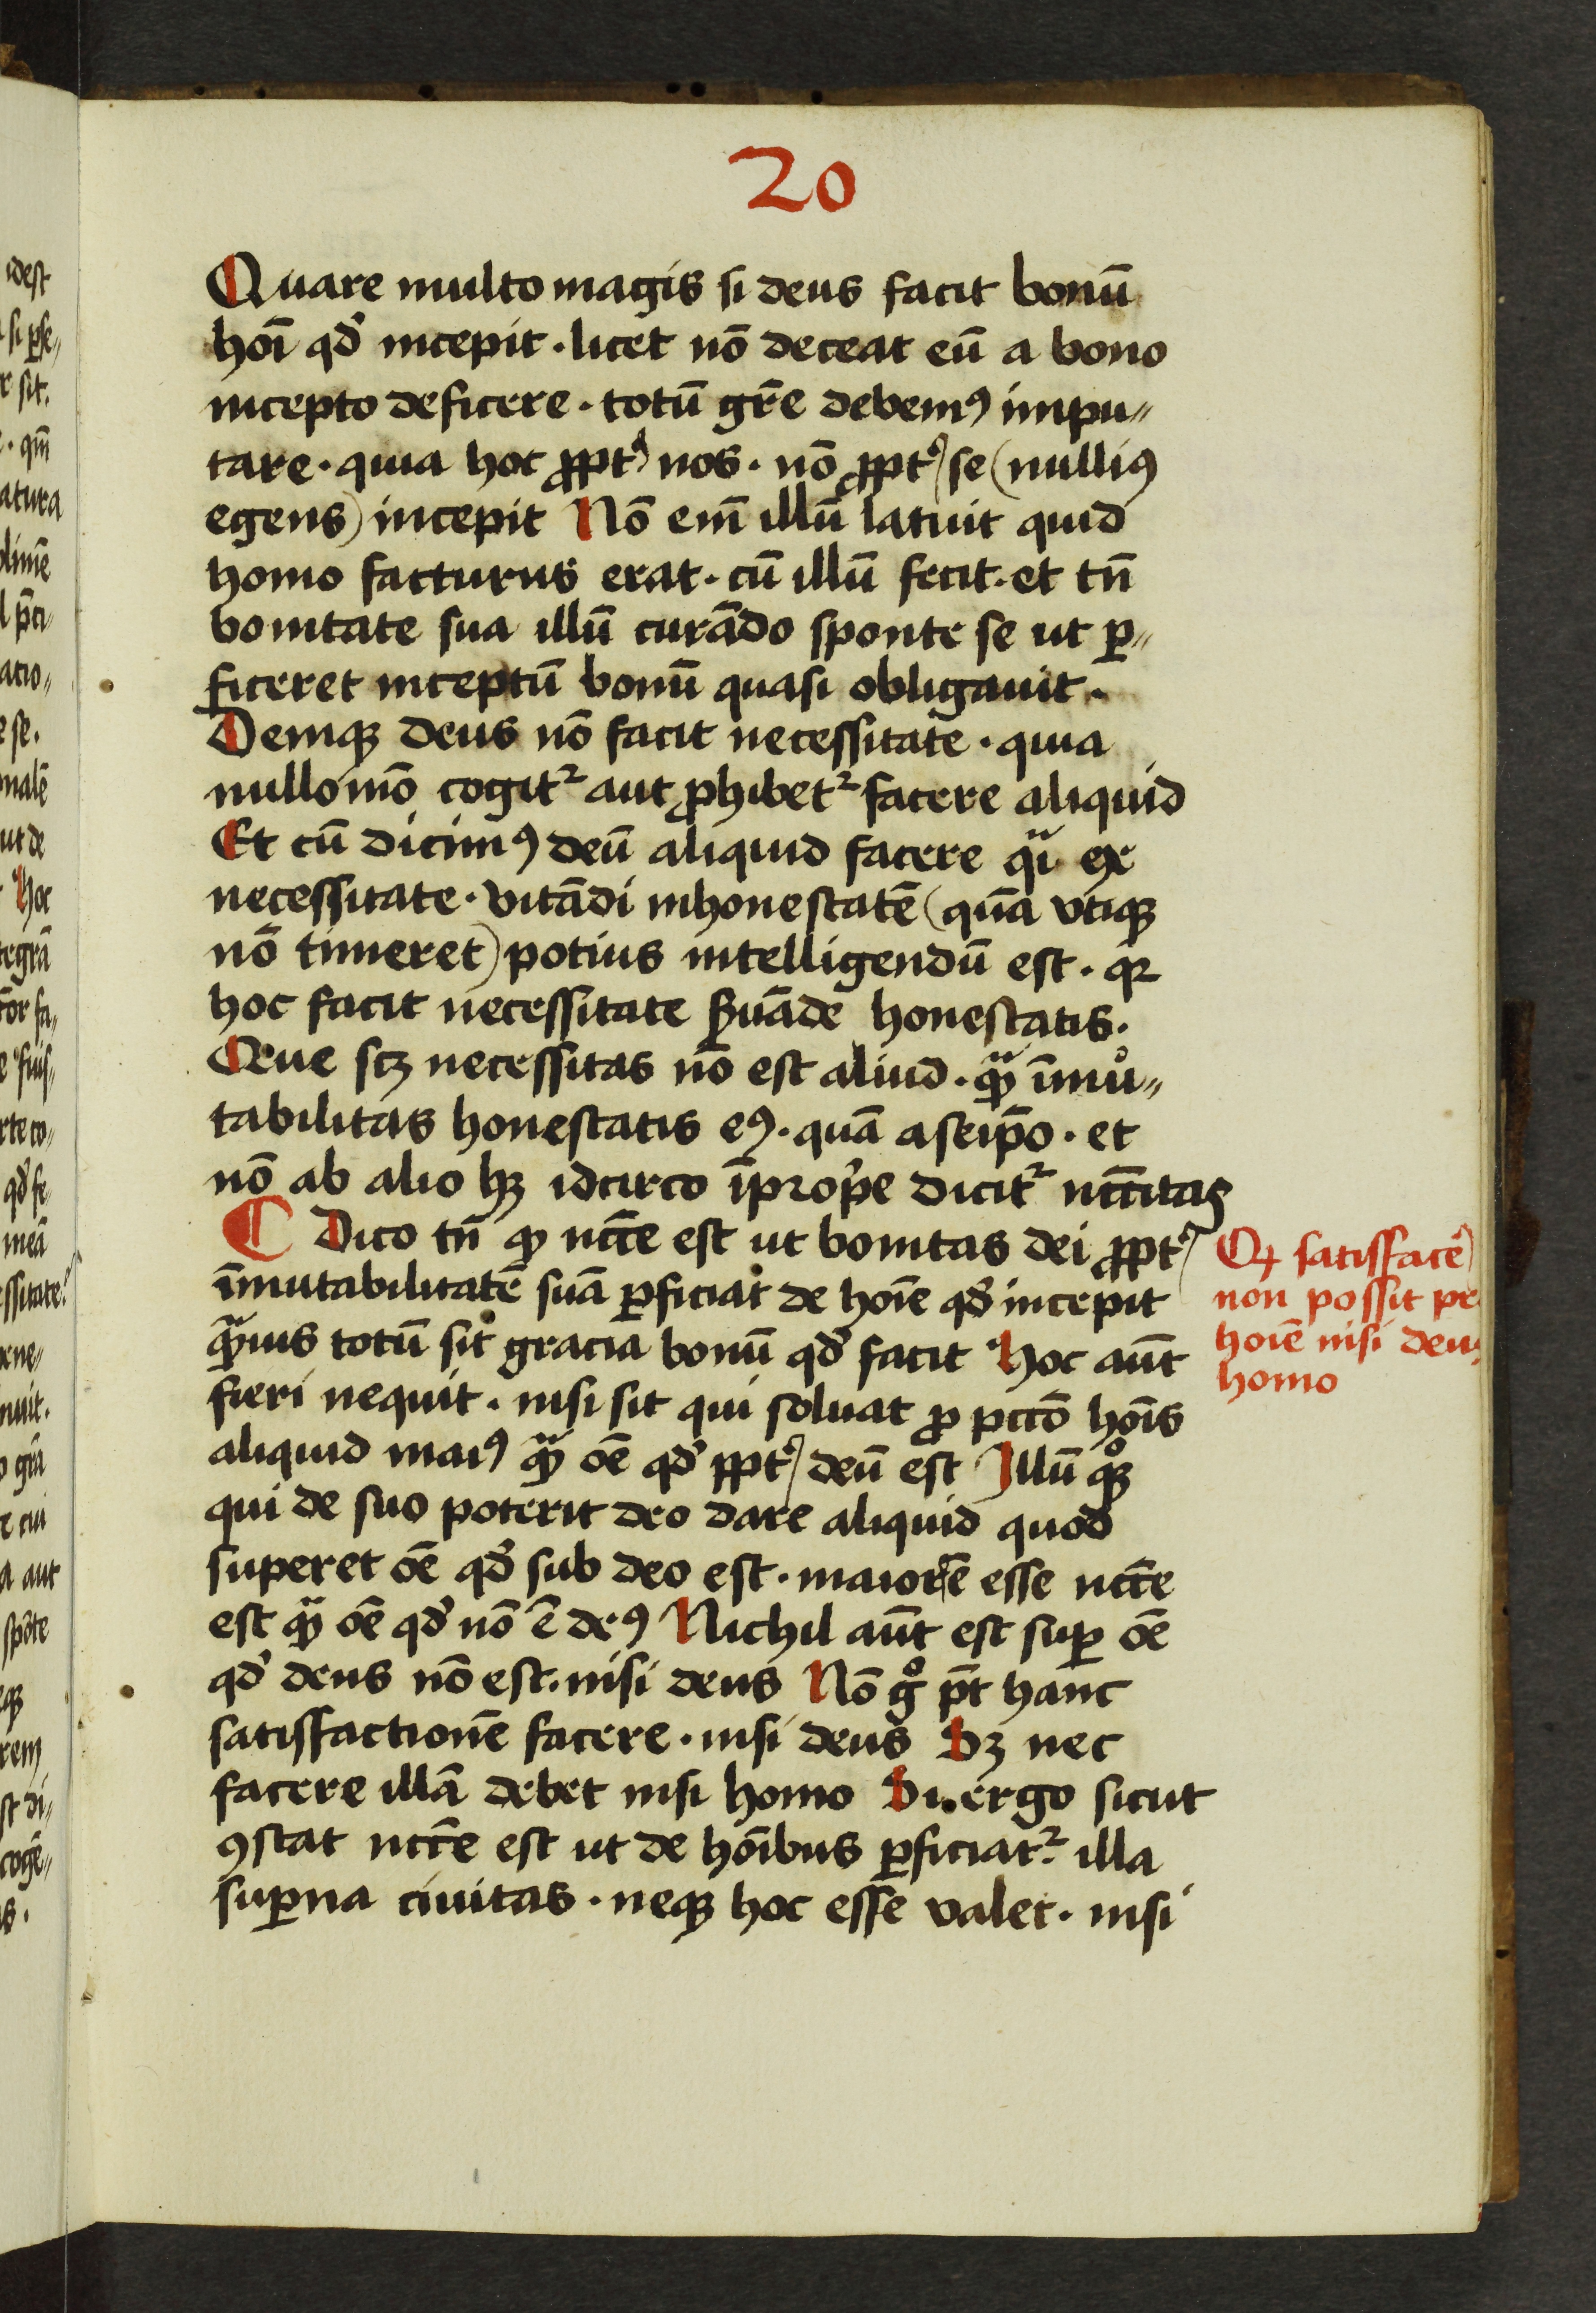 20
Quare multo magis si deus facit bonū
hoī qď incepit · licet nō deceat eū a bono
incepto deficere · totū gr̄e debemꝰ impu〃
tare · quia hoc ꝓptꝰ nos · nō ꝓptꝰ se (nulliꝰ
egens) incepit Nō em̄ illū latuit quid
homo facturus erat · cū illū fecit · et tn̄
bonitate sua illū curādo sponte se ut ꝑ〃
ficeret inceptū bonū quasi obligauit ·
Deniqꝫ deus nō facit necessitate · quia
nullomō cogitᷣ aut ꝓhibetᷣ facere aliquid
Et cū dicimꝰ deū aliquid facere qͣi ex
necessitate · vitādi inhonestatē (quā vtiqꝫ
nō timeret) potius intelligendū est · qꝛ
hoc facit necessitate ẜuāde honestatis ·
Que scꝫ necessitas nō est aliud · qͣꝫ īmu〃
tabilitas honestatis eꝰ · quā a seip̄o · et
nō ab alio hꝫ idcirco īprop̄e dicitᷣ nccītas
Dico tn̄ ꝙ ncc̄e est ut bonitas dei ꝓptꝰ
īmutabilitatē suā ꝑficiat de hoīe qď incepit
qͣꝫuis totū sit gracia bonū qď facit Hoc aūt
fieri nequit · nisi sit qui soluat ꝓ pccō hoīs
aliquid maiꝰ qͣꝫ oē qď pptꝰ deū est Illū qͦꝫ
qui de suo poterit deo dare aliquid quod
superet oē qď sub deo est · maiorē esse ncc̄e
est qͣꝫ oē qď nō ē deꝰ Nichil aūt est suꝑ oē
qď deus nō est · nisi deus Nō gͦ pt̄ hanc
satisfactionē facere · nisi deus Sꝫ nec
facere illā debet nisi homo Si ergo sicut
ꝯstat ncc̄e est ut de hoībus ꝑficiatᷣ illa
suꝑna ciuitas · neqꝫ hoc esse valet · nisi
Ꝙ satisfacē
non possit pe
hoīe nisi deus
homo